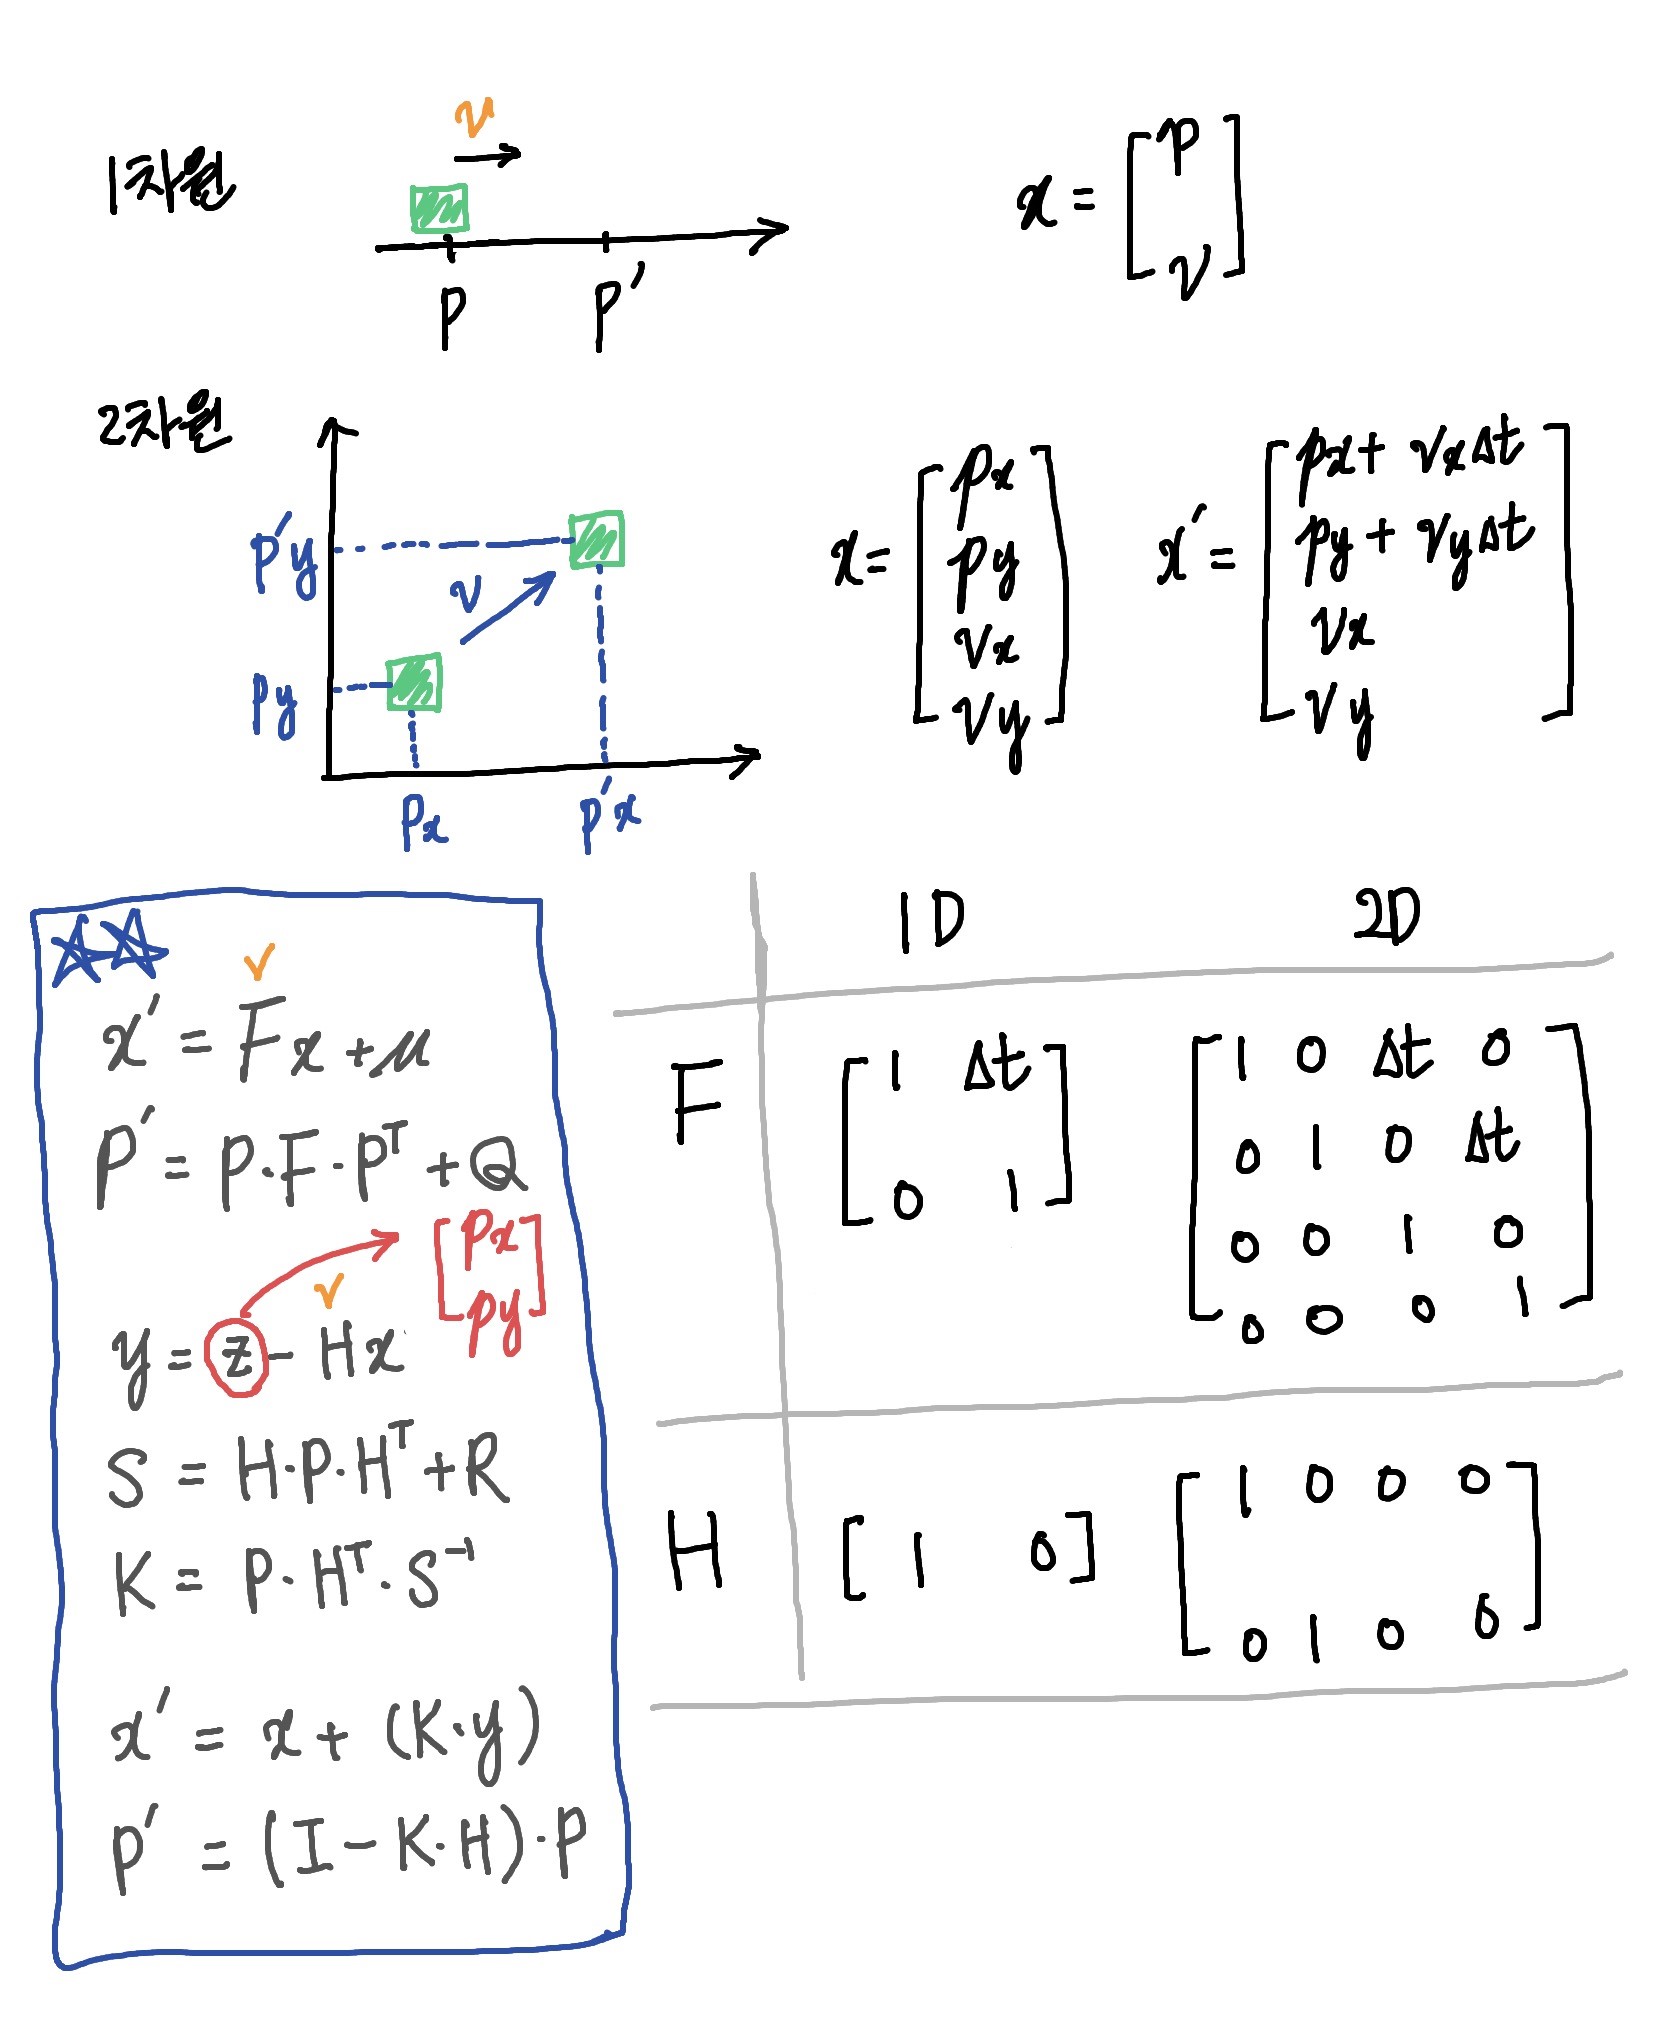 1차원
v
P P′
x = [ p
v ]
2차원
p′y
v
py
px p′x
x = [ px
py
vx
vy ]
x′ = [ px + vxΔt
py + vyΔt
vx
vy ]
☆☆
✓
x′ = Fx + μ
P′ = P·F·Pᵀ + Q
[ px
py ]
✓
y = z - Hx
S = H·P·Hᵀ + R
K = P·Hᵀ·S⁻¹
x′ = x + (K·y)
P′ = (I - K·H)·P
1D 2D
F
[ 1 Δt
0 1 ]
[ 1 0 Δt 0
0 1 0 Δt
0 0 1 0
0 0 0 1 ]
H
[ 1 0 ]
[ 1 0 0 0
0 1 0 0 ]